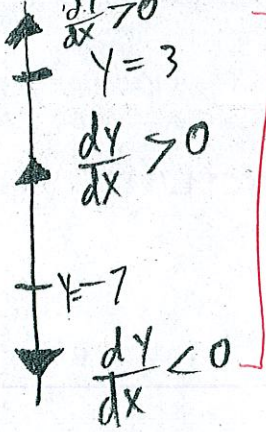 dy/dx > 0
y = 3
dy/dx > 0
y = -7
dy/dx < 0